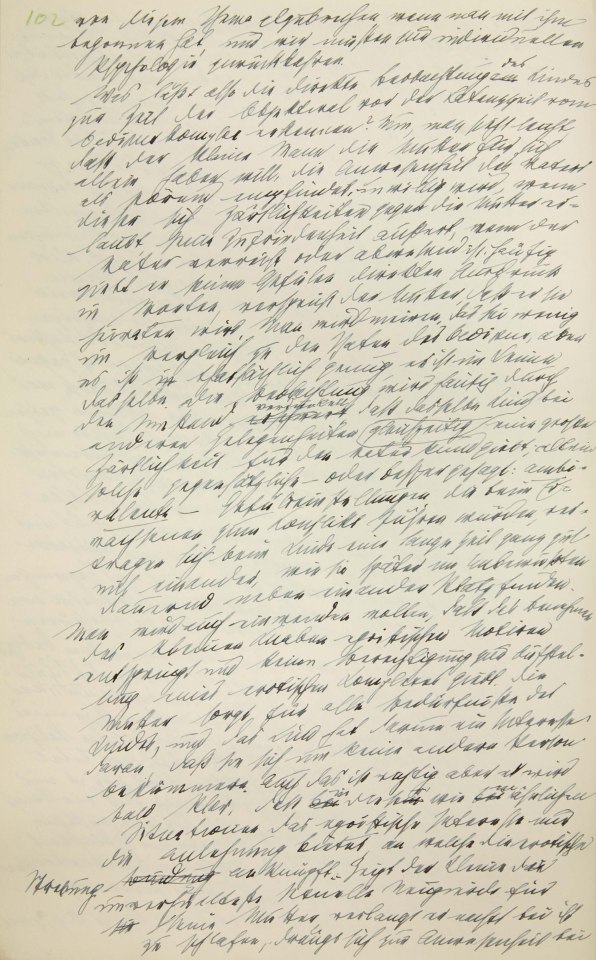 102 von diesem Thema abzubrechen wenn man mit ihm
begonnen hat, und wir müssen zur individuellen
Psychologie zurückkehren.
Was läßt also die direkte Beobachtung des Kindes
zur Zeit der Objektwal vor der Latenzzeit vom
Oedipuskomplex erkennen? Nun, man sieht leicht
daß der kleine Mann die Mutter für sich
allein haben will, die Anwesenheit des Vaters
als störend empfindet, unwillig wird, wenn
dieser sich Zärtlichkeiten gegen die Mutter er-
laubt seine Zufriedenheit äußert, wenn der
Vater verreist oder abwesend ist. Häufig
giebt er seinen Gefülen direkten Ausdruck
in Worten, verspricht der Mutter, daß er sie
heiraten wird. Man wird meinen, das sei wenig
im Vergleich zu den Taten des Oedipus, aber
es ist tatsächlich genug, es ist im Keime
dasselbe. Die Beobachtung wird häufig durch
den Umstand verdunkelt daß dasselbe Kind bei
anderen Gelegenheiten gleichzeitig eine große
Zärtlichkeit für den Vater kundgiebt; allein
solche gegensätzliche – oder besser gesagt: ambi-
valente – Gefülseinstellungen die beim Er-
wachsenen zum Konflikt führen würden ver-
tragen sich beim Kinde eine lange Zeit ganz gut
mit einander, wie sie später im Unbewußten
dauernd neben einander Platz finden.
Man wird auch einwenden wollen, daß das Benehmen
des kleinen Knaben egoistischen Motiven
entspringt und keine Berechtigung zur Aufstel-
lung eines erotischen Komplexes giebt. Die
Mutter sorgt für alle Bedürfnisse des
Kindes, und das Kind hat darum ein Interesse
daran, daß sie sich um keine andere Person
bekümmere. Auch das ist richtig aber es wird
bald klar, daß in dieser wie in ähnlichen
Situationen das egoistische Interesse nur
die Anlehnung bietet, an welche die erotische
Strebung anknüpft. Zeigt der Kleine die
unverhüllteste sexuelle Neugierde für
seine Mutter, verlangt er nachts bei ihr
zu schlafen, drängt sich zur Anwesenheit bei